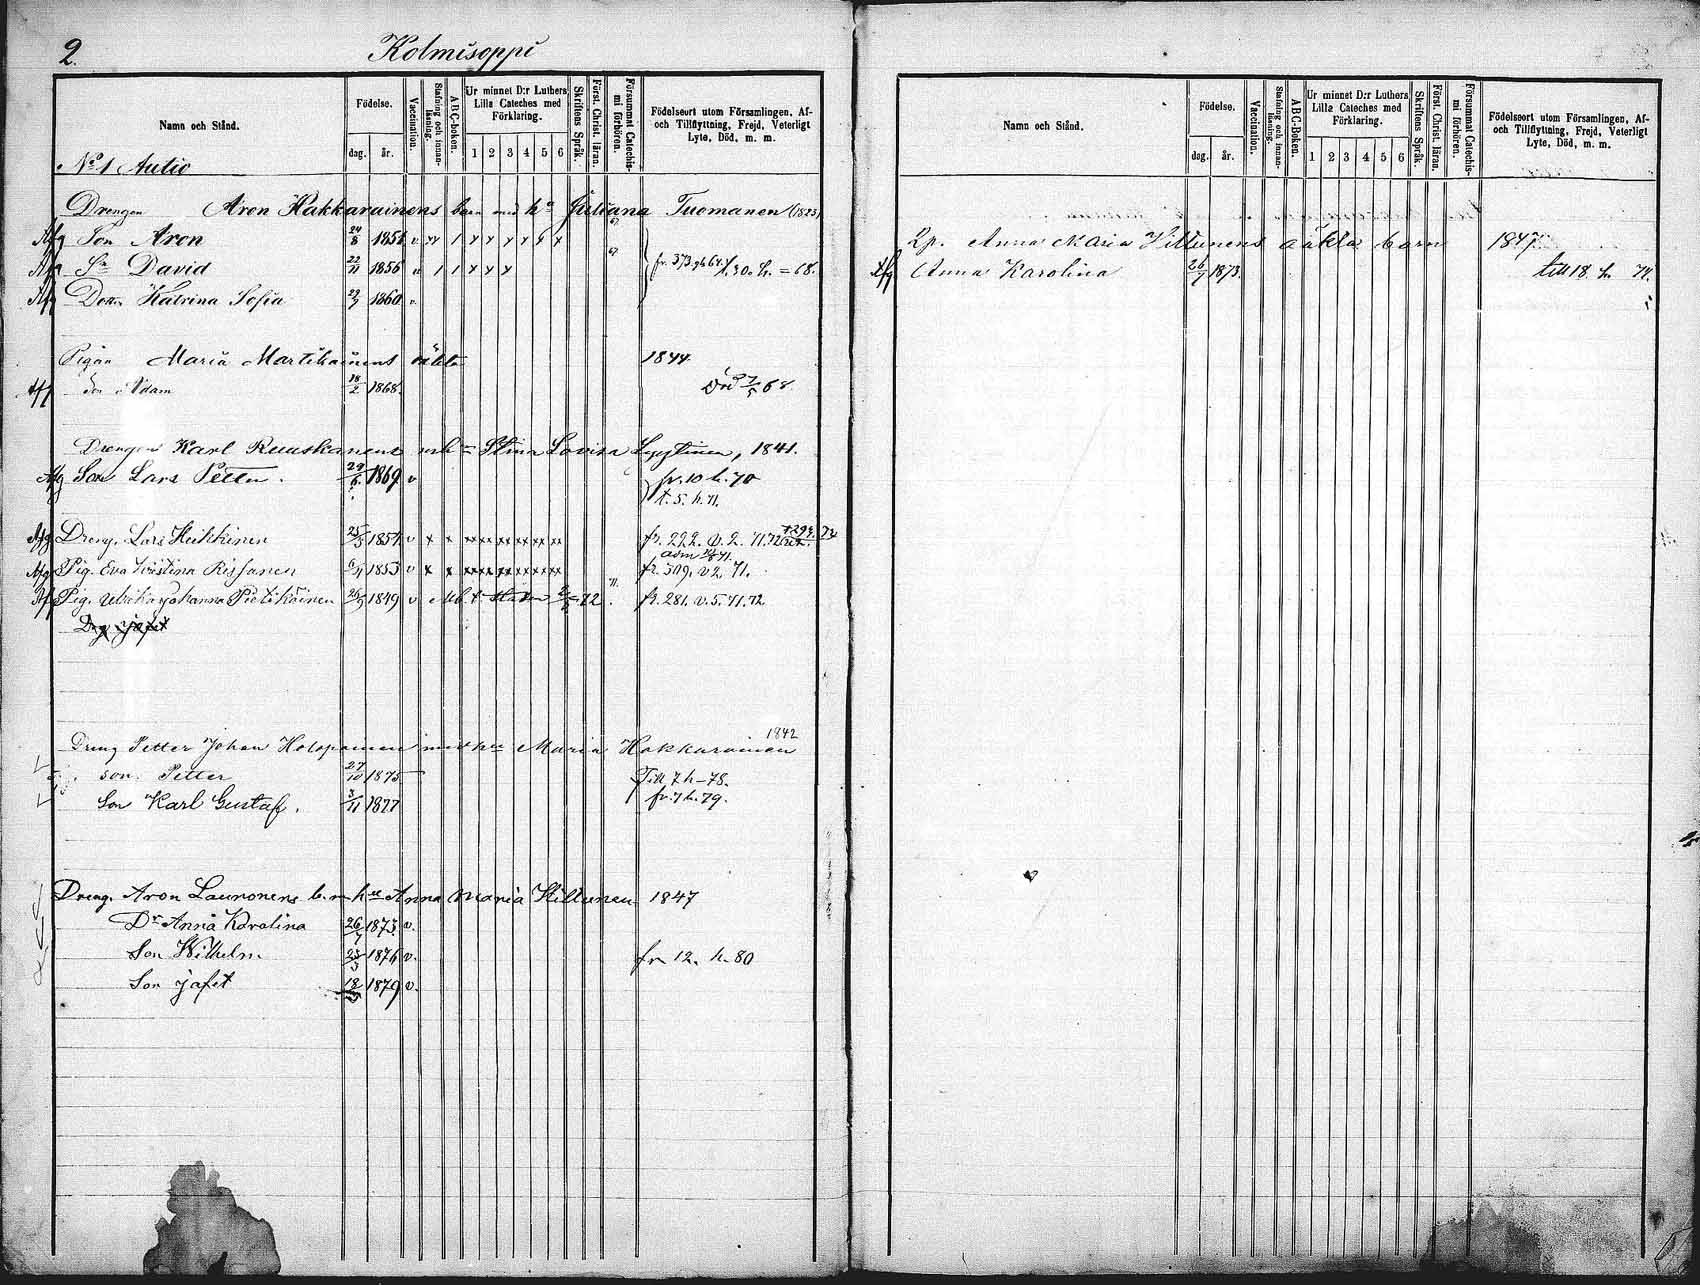 2.
Kolmisoppi
Namn och Stånd.
Födelse.
dag.
år.
Vaccination.
Stafning och innanläsning.
ABC-boken.
Ur minnet D:r Luthers Lilla Cateches med Förklaring.
1 2 3 4 5 6
Skriftens Språk.
Först. Christ. läran.
Försummat Catechismi förhören.
Födelseort utom Församlingen, Af- och Tillflyttning, Frejd, Veterligt Lyte, Död, m. m.
No 1 Autio
Drengen Aron Hakkarainens barn med hu Juliana Tuomanen (1823)
Afg Son Aron 24/8 1851 v
Afg Sn David 22/11 1856 v fr. 373. t. 30. hr. = 68.
Afg Dottr Katrina Sofia 1860 v.
Pigan Maria Martikainens oäkta 1844.
Afg Son Adam 18/2 1868. Död 7/5 68
Drengen Karl Ruuskanens mh Stina Lovisa 1841.
Afg Son Lars Petter. 1869 v fr. 10 h. 70
t. 5. h. 71.
Afg Dreng. Lars Heikkinen 25/3 1854 v fr. 222. v. 2. 71.72
Afg Pig. Eva Kristina Rissanen 1853 v fr. 509. v 2. 71.
Afg Pig. Ulrika Johanna Pietikäinen 26/9 1849 v fr. 281. v. 5. 71. 72
Drg Jafet
1842
Dreng Petter Johan Holopainen med hu Maria Hakkarainen
son. Petter 27/10 1875 Till 7 h - 78.
Son Karl Gustaf. 3/11 1877 fr. 7 h. 79.
Dreng. Aron Lauronens b. m hu Anna Maria Hiltunen 1847
Dr Anna Karolina 26/7 1873. v.
Son Wilhelm 23/3 1876 v. fr. 12. h. 80
Son Jafet 1879 v.
Namn och Stånd.
Födelse.
dag.
år.
Vaccination.
Stafning och innanläsning.
ABC-Boken.
Ur minnet D:r Luthers Lilla Cateches med Förklaring.
1 2 3 4 5 6
Skriftens Språk.
Först. Christ. läran.
Försummat Catechismi förhören.
Födelseort utom Församlingen, Af- och Tillflyttning, Frejd, Veterligt Lyte, Död, m. m.
Lp. Anna Maria Hiltunens oäkta barn 1847
Afg Anna Karolina 26/7 1873. till 18. h 74.